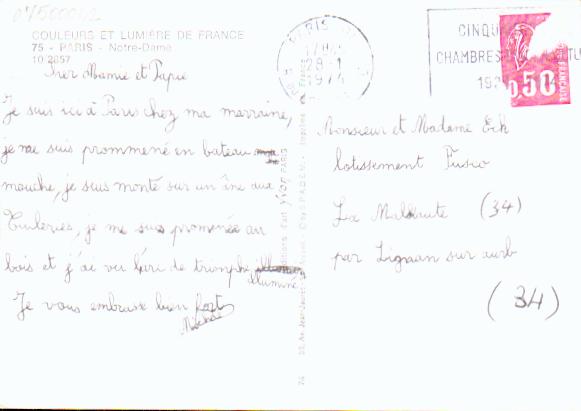 07500062
COULEURS ET LUMIÈRE DE FRANCE
75 - PARIS - Notre-Dame
10 2857
Cher Mamie et Papie
Je suis ici à Paris chez ma marraine,
je me suis prommené en bateau
mouche, je suis monté sur un âne aux
Tuileries, je me suis promenée au
bois et j'ai vu l'arc de triomphe
illuminé
Je vous embrasse bien fort
Editions d'art yvon PARIS
PARIS
28-1
1974
CINQU
CHAMBRES
0,50
Monsieur et Madame Eck
lotissement Fusco
La Malhaute (34)
par Lignan sur orb
(34)